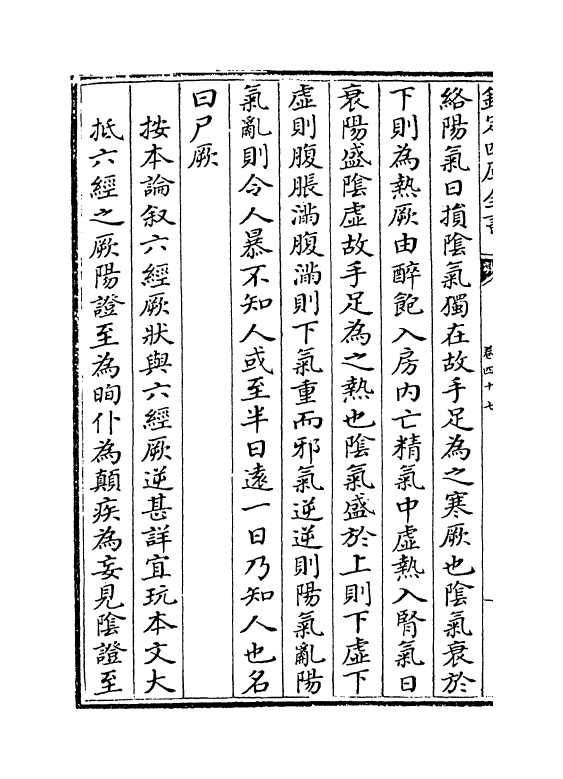 欽定四庫全書
卷四十七
絡陽氣日損陰氣獨在故手足為之寒厥也陰氣衰於
下則為熱厥由醉飽入房內亡精氣中虛熱入腎氣日
衰陽盛陰虛故手足為之熱也陰氣盛於上則下虛下
虛則腹脹滿腹滿則下氣重而邪氣逆逆則陽氣亂陽
氣亂則令人暴不知人或至半日遠一日乃知人也名
曰尸厥
按本論叙六經厥狀與六經厥逆甚詳宜玩本文大
抵六經之厥陽證至為眴仆為顛疾為妄見陰證至